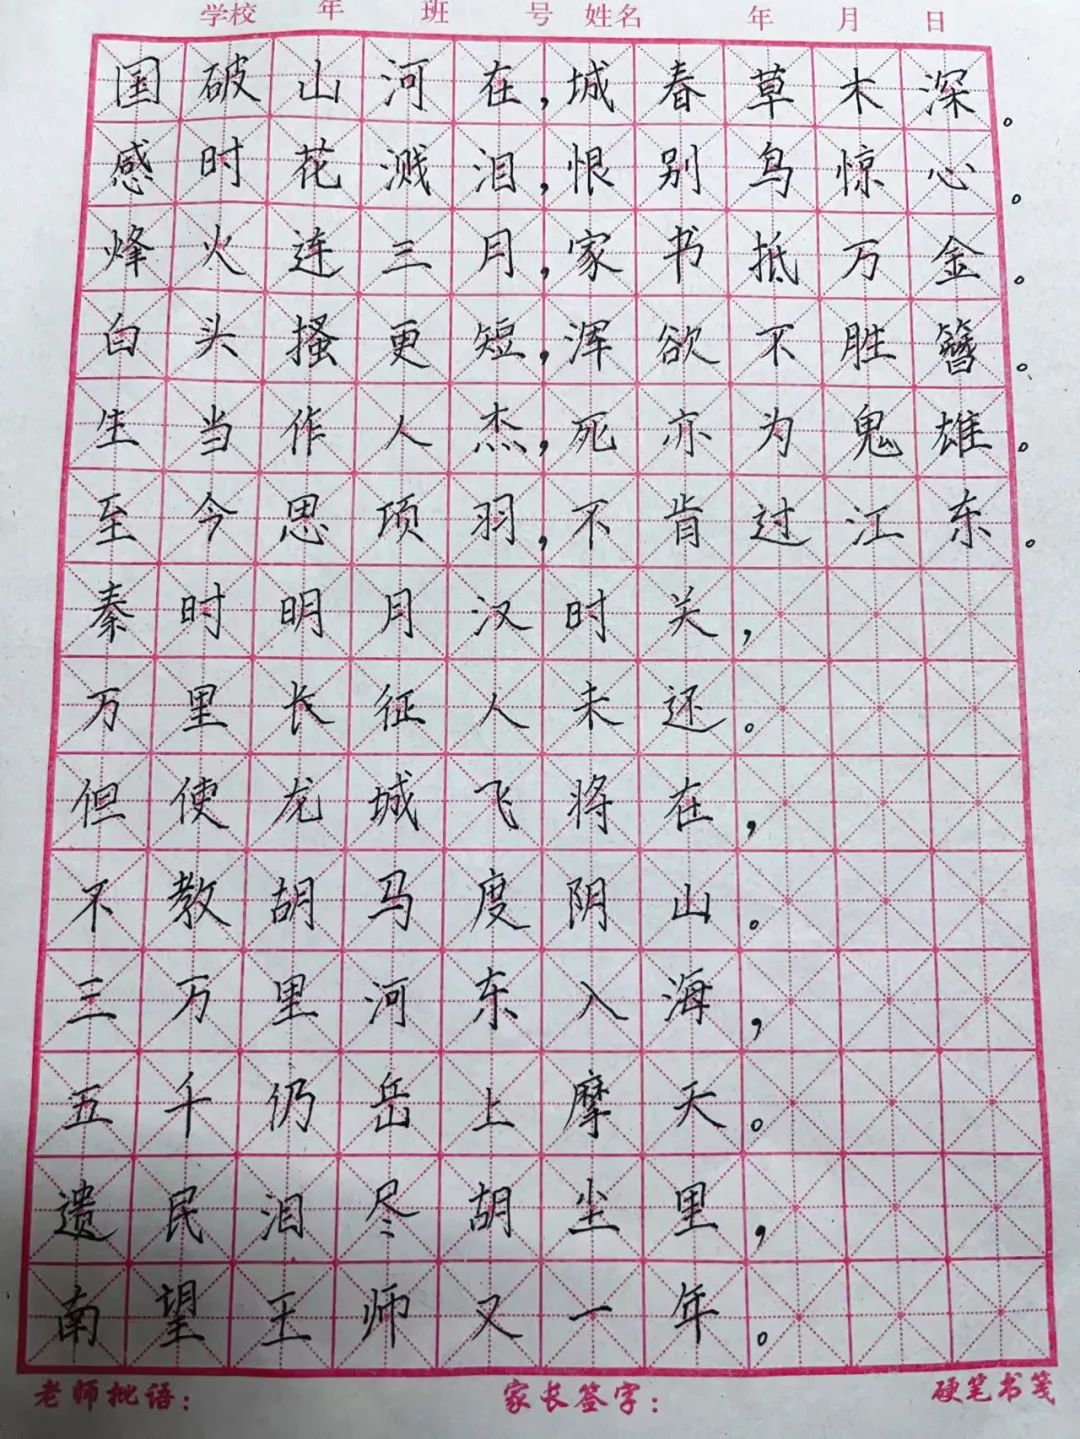 学校 年 班 号 姓名 年 月 日
国破山河在,城春草木深。
感时花溅泪,恨别鸟惊心。
烽火连三月,家书抵万金。
白头搔更短,浑欲不胜簪。
生当作人杰,死亦为鬼雄。
至今思项羽,不肯过江东。
秦时明月汉时关,
万里长征人未还。
但使龙城飞将在,
不教胡马度阴山。
三万里河东入海,
五千仞岳上摩天。
遗民泪尽胡尘里,
南望王师又一年。
老师批语: 家长签字: 硬笔书笺